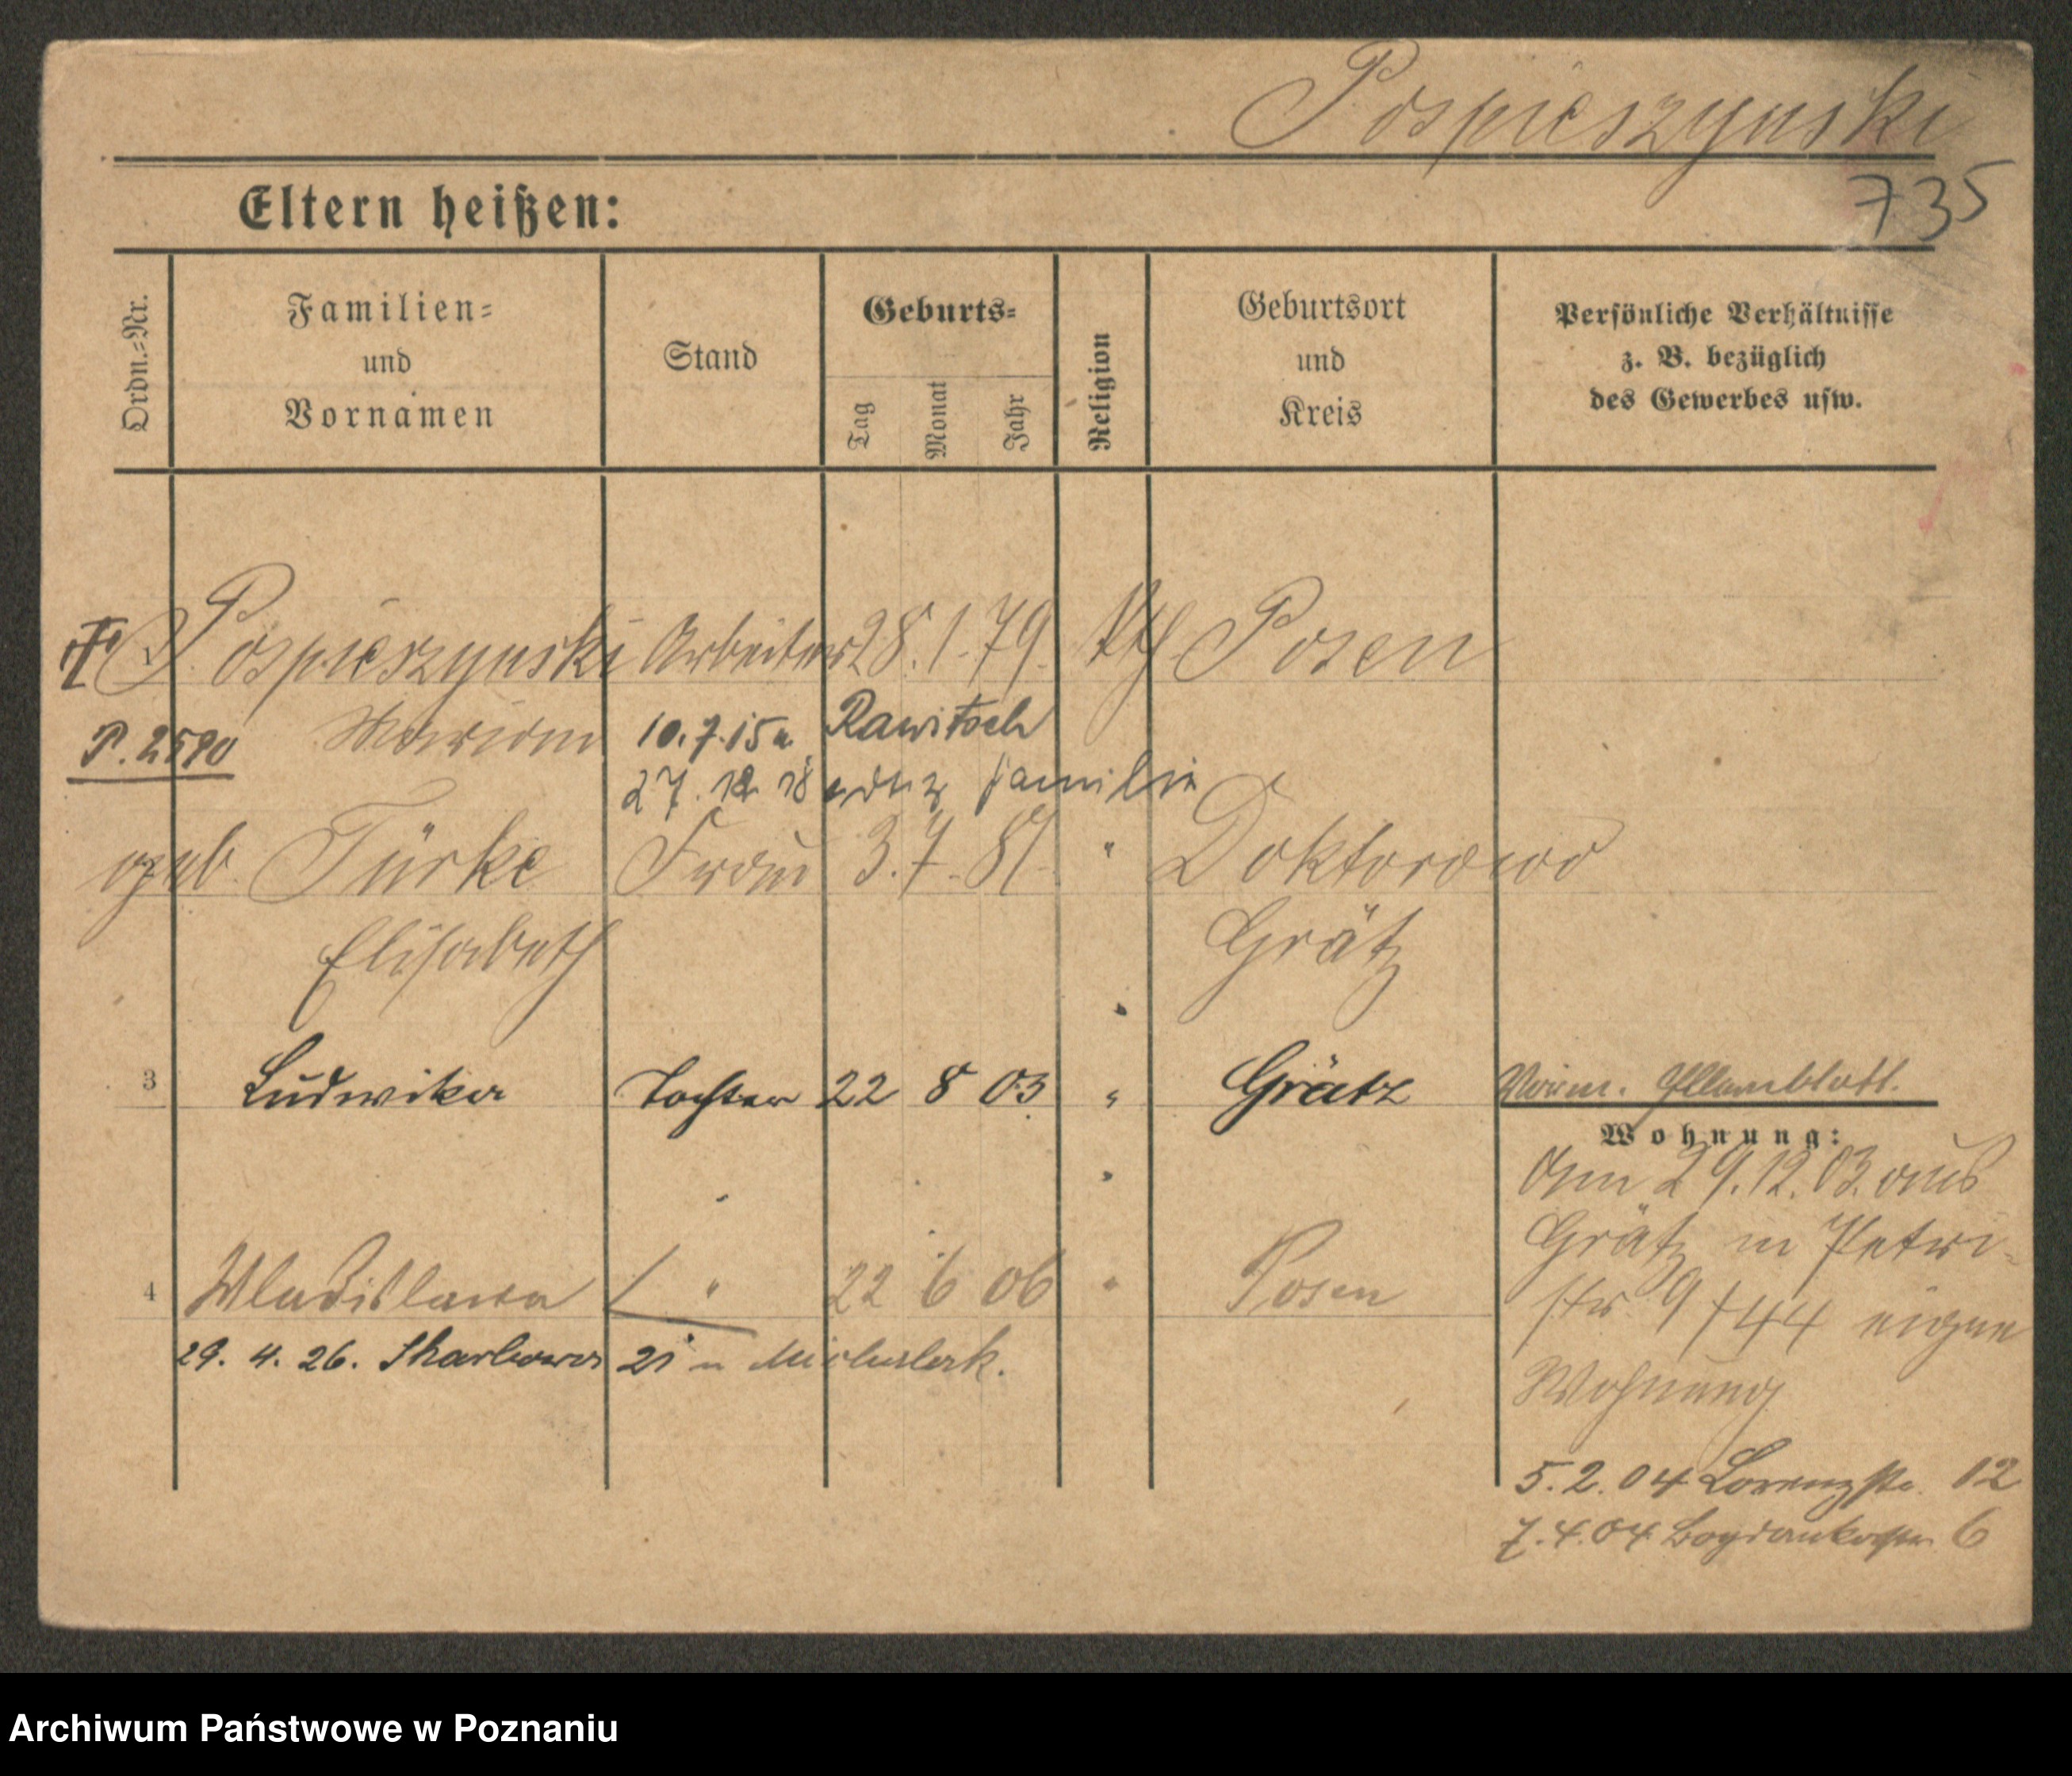 Pospieszynski
735
Eltern heißen:
Ordn.=Nr.
Familien=
und
Vornamen
Stand
Geburts=
Tag
Monat
Jahr
Religion
Geburtsort
und
Kreis
Persönliche Verhältnisse
z. B. bezüglich
des Gewerbes usw.
1 Pospieszynski Arbeiter 28. 1. 79. Kth Posen
P. 2590 Marian 10. 7. 15 n. Rawitsch
27. 12 18 Familie
geb. Türke Frau 3. 7. 81. " Doktorowo
Elisabeth Grätz
3 Ludwika Tochter 22 8 03 " Grätz
Wohnung:
Am 29. 12. 03. aus
Grätz in Petri-
str. 9 eigene
Wohnung
4 Wladislawa " 22 6 06 " Posen
29. 4. 26. Skarbowa 21
5. 2. 04 Lorenzstr. 12
7. 4. 04 Bogdankastr. 6
Archiwum Państwowe w Poznaniu